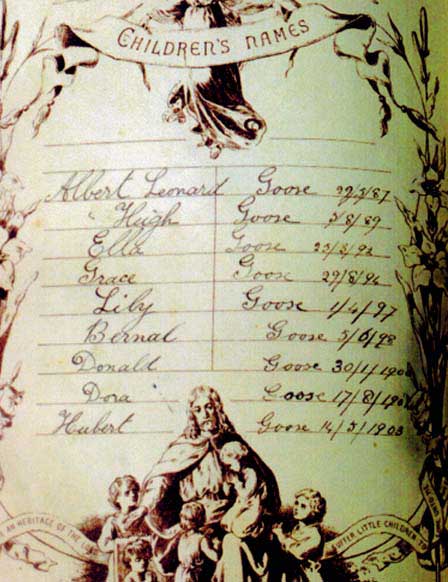 CHILDREN'S NAMES
Albert Leonard Goose 22/3/87
Hugh Goose 5/8/89
Ella Goose 23/8/92
Grace Goose 29/8/94
Lily Goose 1/4/97
Bernal Goose 5/6/98
Donald Goose 30/1/190
Dora Goose 17/8/190
Hubert Goose 14/5/1903
AN HERITAGE OF THE
SUFFER LITTLE CHILDREN TO